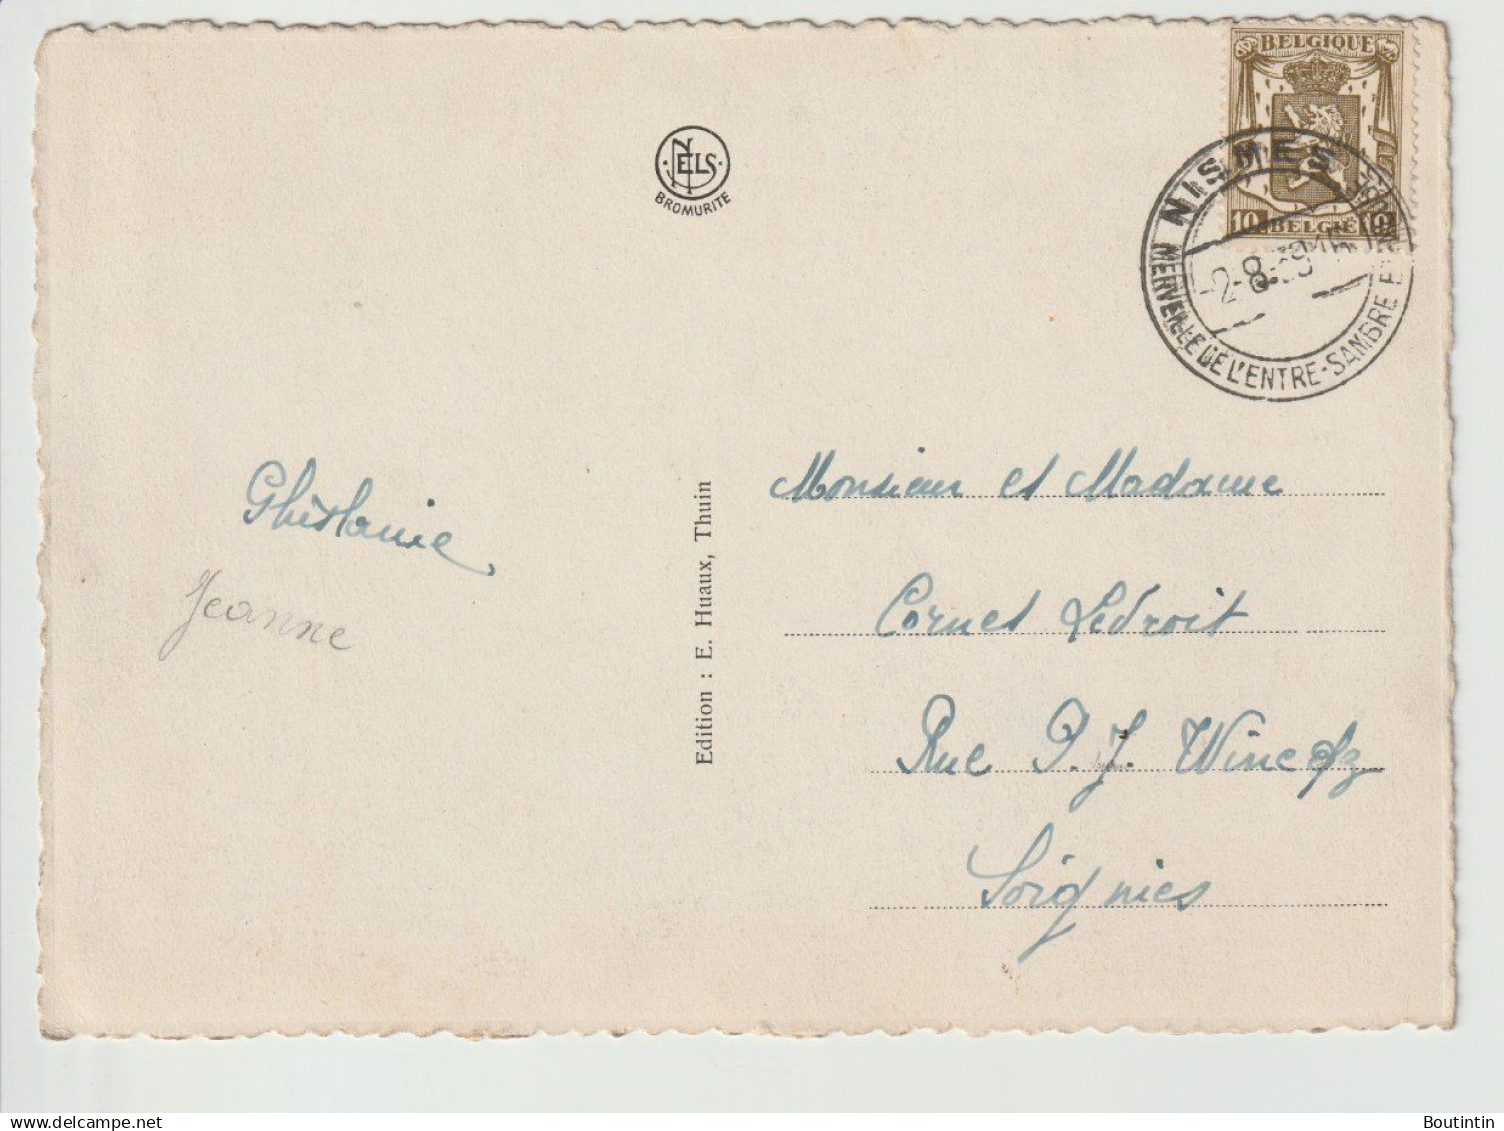 BELGIQUE
10 BELGIË 10
NELS
BROMURITE
NISMES
MERVEILLE DE L'ENTRE-SAMBRE
-2-8-39
Ghislaine
Jeanne
Edition : E. Huaux, Thuin
Monsieur et Madame
Cornet Ledroit
Rue P. J. Wincqz
Soignies
Boutintin